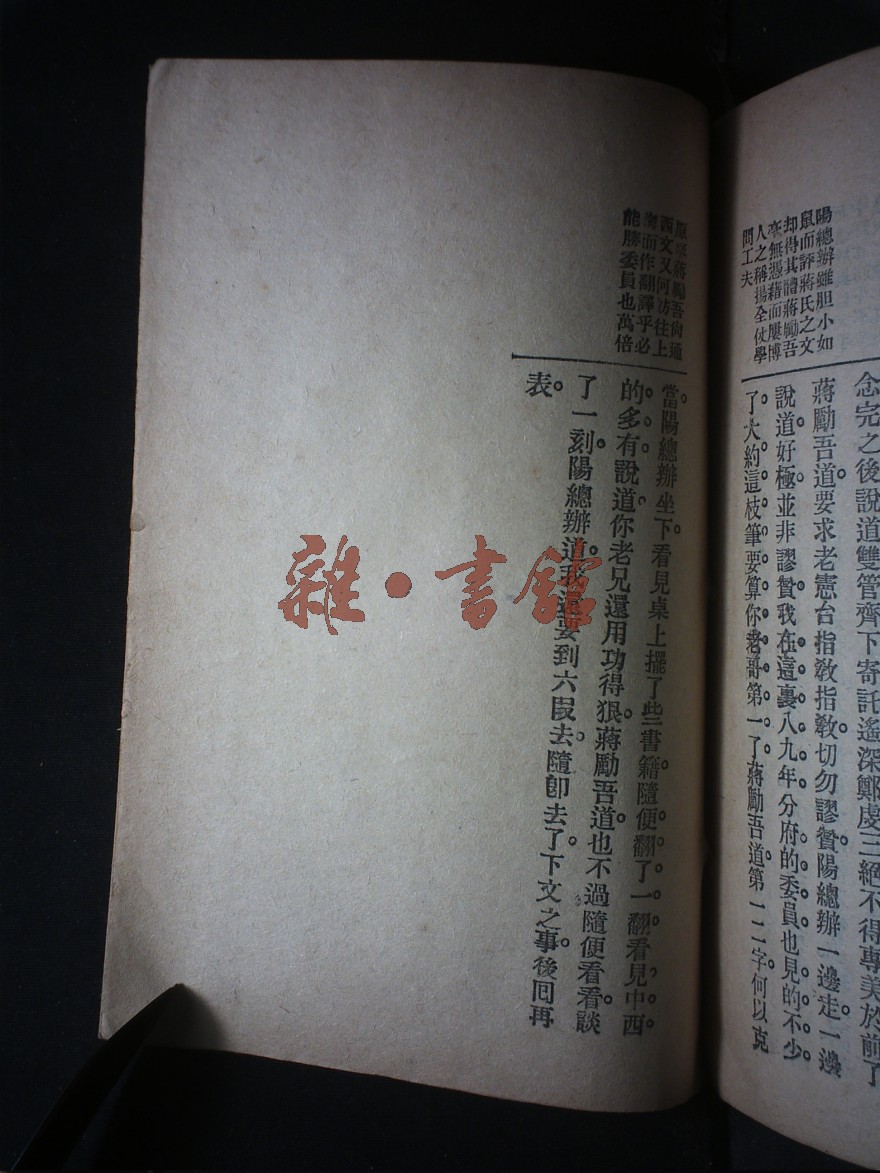 陽總辦雖胆小如
鼠而評蔣氏之文
却得其體蔣勵吾
毫無憑藉而屢博
人之稱揚全仗學
問工夫
念完之後說道雙管齊下寄託遙深鄭虔三絕不得專美於前了
蔣勵吾道要求老憲台指敎指敎切勿謬贊陽總辦一邊走一邊
說道好極並非謬贊我在這裏八九年分府的委員也見的不少
了大約這枝筆要算你老哥第一了蔣勵吾道第一二字何以克
蔣勵吾尙通
西文又何妨往上
而作翻譯乎必
能勝委員也萬倍
當陽總辦坐下看見桌上擺了些書籍隨便翻了一翻看見中西
的多有說道你老兄還用功得狠蔣勵吾道也不過隨便看看談
了一刻陽總辦道我還要到六段去隨卽去了下文之事後囘再
表
雜·書館